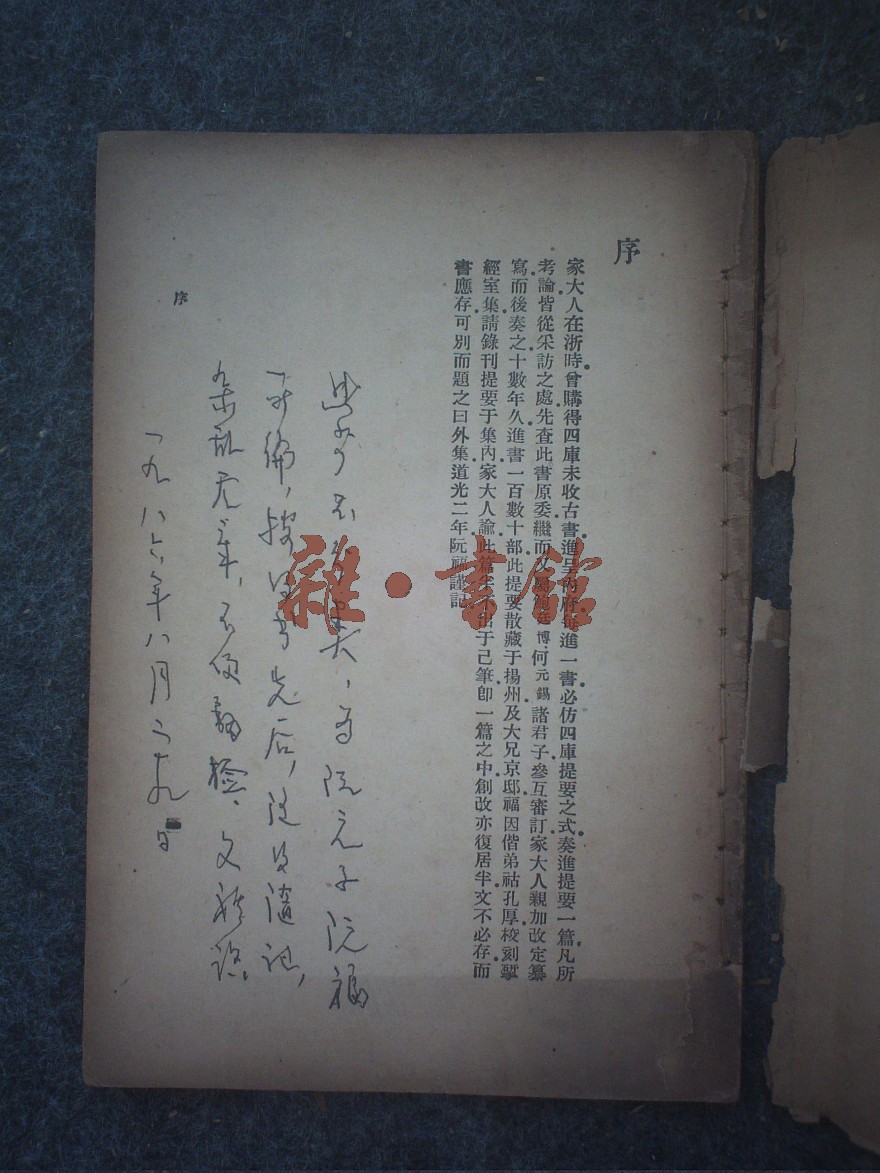 序
家大人在浙時曾購得四庫未收古書進呈內府每進一書必仿四庫提要之式奏進提要一篇凡所
考論皆從采訪之處先查此書原委繼而又屬鮑廷博何元錫諸君子參互審訂家大人親加改定纂
寫而後奏之十數年久進書一百數十部此提要散藏于揚州及大兄京邸福因偕弟祜孔厚校刻揅
經室集請錄刊提要于集內家大人諭此篇半不出于己筆即一篇之中創改亦復居半文不必存而
書應存可別而題之曰外集道光二年阮福謹記
為阮元子阮福
所編，按得書先后，隨得隨記，
杂乱无章，不便翻检，
一九八六年八月二十九日
序
雜·書館